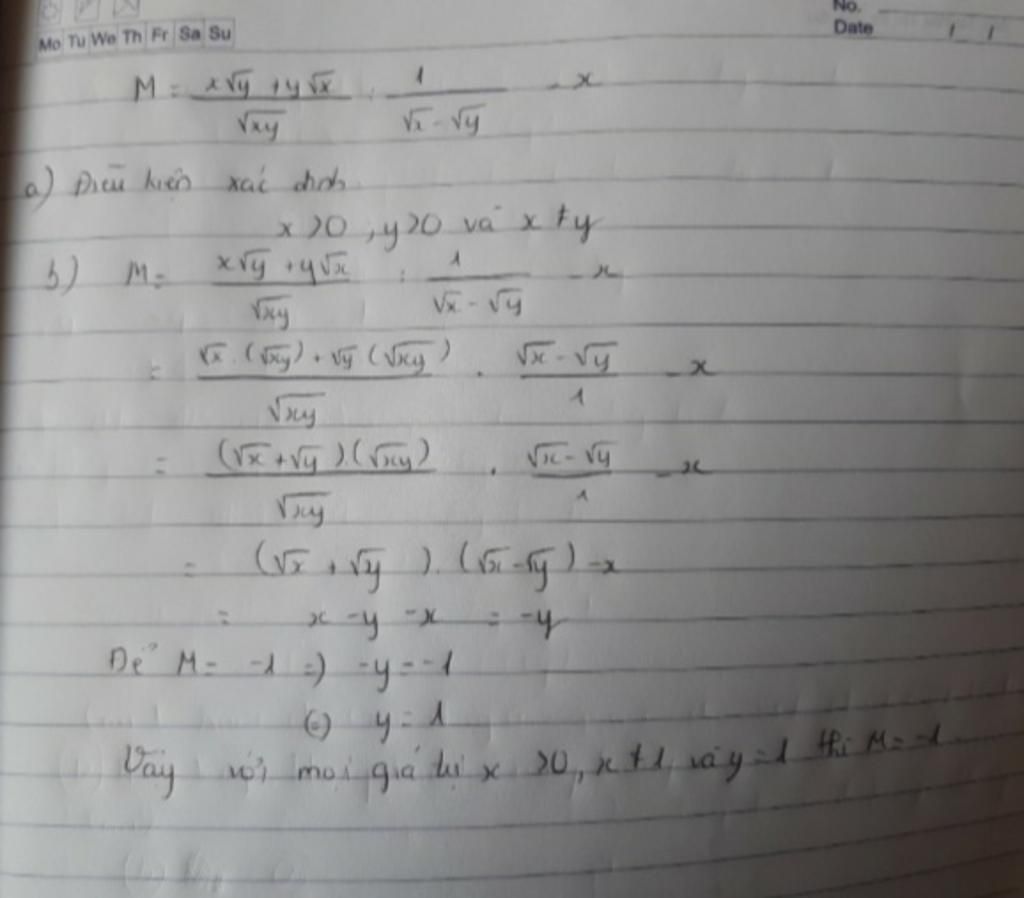 No.
Date / /
Mo Tu We Th Fr Sa Su
M = x√y + y√x / √xy : 1 / √x - √y - x
a) Điều kiện xác định
x > 0, y > 0 và x ≠ y
b) M = x√y + y√x / √xy : 1 / √x - √y - x
= √x . (√xy) + √y (√xy) / √xy . √x - √y / 1 - x
= (√x + √y).(√xy) / √xy . √x - √y / 1 - x
= (√x + √y). (√x - √y) - x
= x - y - x = -y
Để M = -1 => -y = -1
(=) y = 1
Vậy với mọi giá trị x > 0, x ≠ 1 và y = 1 thì M = -1